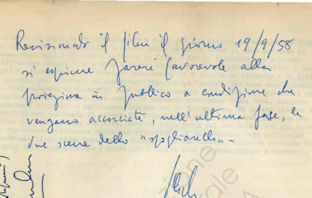 Revisionato il film il giorno 19/9/58
si esprime parere favorevole alla
proiezione in pubblico a condizione che
vengano accorciate, nell'ultima fase, le
due scene dello "spogliarello"..